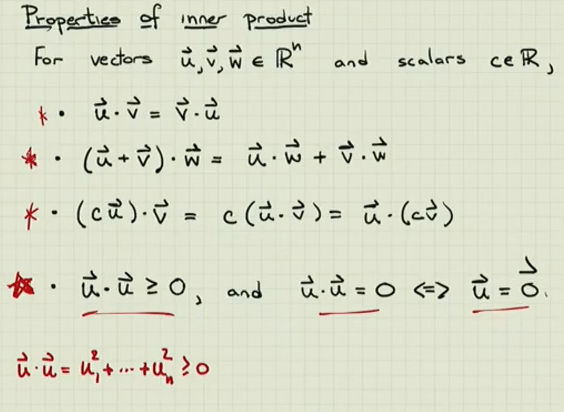 Properties of inner product
For vectors u⃗, v⃗, w⃗ ∈ ℝⁿ and scalars c∈ℝ,
* • u⃗ · v⃗ = v⃗ · u⃗
* • (u⃗ + v⃗) · w⃗ = u⃗ · w⃗ + v⃗ · w⃗
* • (cu⃗) · v⃗ = c (u⃗ · v⃗) = u⃗ · (cv⃗)
* • u⃗ · u⃗ ≥ 0, and u⃗ · u⃗ = 0 <=> u⃗ = 0⃗.
u⃗ · u⃗ = u₁² + ··· + uₙ² ≥ 0